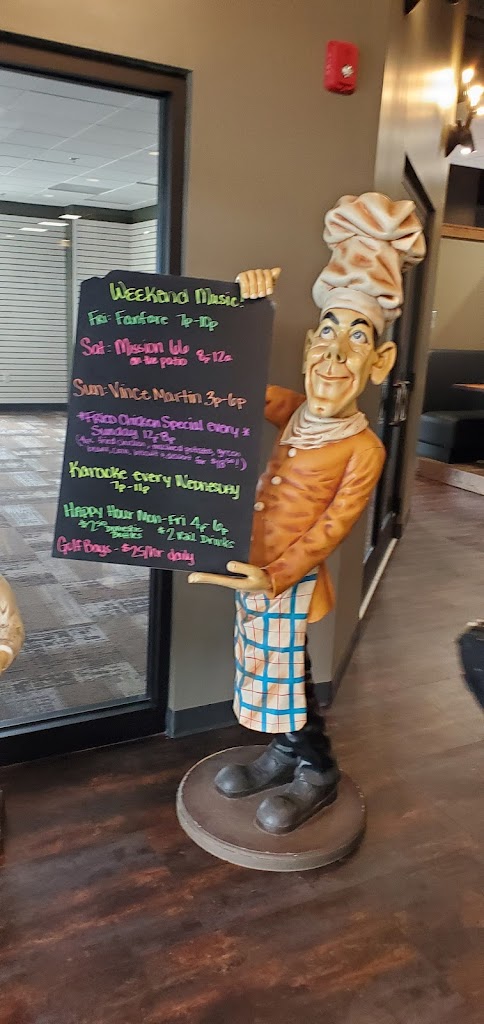 Weekend Music!
Fri: Fanfare 7p-10p
Sat: Mission 66 8p-12a
on the patio
Sun: Vince Martin 3p-6p
*Fried Chicken Special every*
Sunday 12p-8p
(4pc fried chicken, mashed potatoes, green
beans, corn, biscuit & dessert for
Karaoke every Wednesday
7p-11p
Happy Hour Mon-Fri 4p-6p
$2.50 Domestic Bottles $2 Rail Drinks
Golf Bays - $25/hr daily